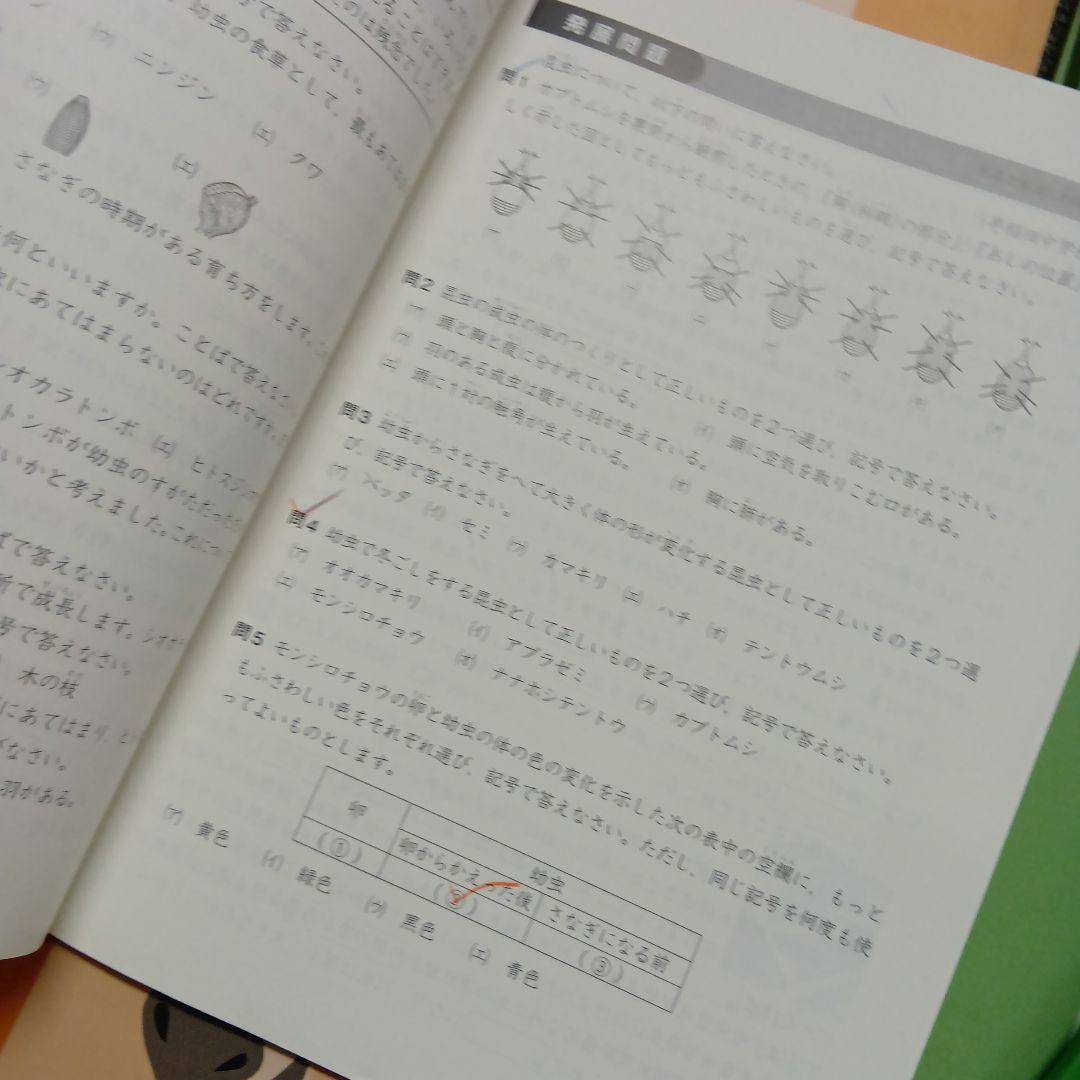 号で答えなさい。
幼虫の食草として、最も
(ウ) ニンジン
(エ) クワ
(ウ)
(エ)
さなぎの時期がある育ち方をします。
何といいますか。ことばで答え
にあてはまらないのはどれです。
シオカラトンボ (エ)
トンボが幼虫のすがた
いかと考えました。これに
で答えなさい。
所で成長します。
号で答えなさい。
木の枝
にあてはまり、
なさい。
羽がある。
発展問題
昆虫について、以下の問いに答えなさい。
問1 カブトムシを裏側から観察したときの、
しく示した図としてもっともふさわしいものを選び、記号で答えなさい。
問2 昆虫の成虫の体のつくりとして正しいものを2つ選び、記号で答えなさい。
(ア) 頭と胸と腹に分かれている。
(イ) 頭に空気を取りこむ口がある。
(ウ) 羽のある成虫は腹から羽が生えている。
(エ) 頭に1対の触角が生えている。
(オ) 胸に肺がある。
問3 幼虫からさなぎをへて大きく体の形が変化する昆虫として正しいものを2つ選
び、記号で答えなさい。
(ア) バッタ (イ) セミ (ウ) カマキリ (エ) ハチ (オ) テントウムシ
問4 幼虫で冬ごしをする昆虫として正しいものを2つ選び、記号で答えなさい。
(ア) オオカマキリ (イ) アブラゼミ (ウ) カブトムシ
(エ) モンシロチョウ (オ) ナナホシテントウ
問5 モンシロチョウの卵と幼虫の体の色の変化を示した次の表中の空欄に、もっと
もふさわしい色をそれぞれ選び、記号で答えなさい。ただし、同じ記号を何度も使
ってよいものとします。
卵 幼虫
卵からかえった後 さなぎになる前
(①) (②) (③)
(ア) 黄色 (イ) 緑色 (ウ) 黒色 (エ) 青色